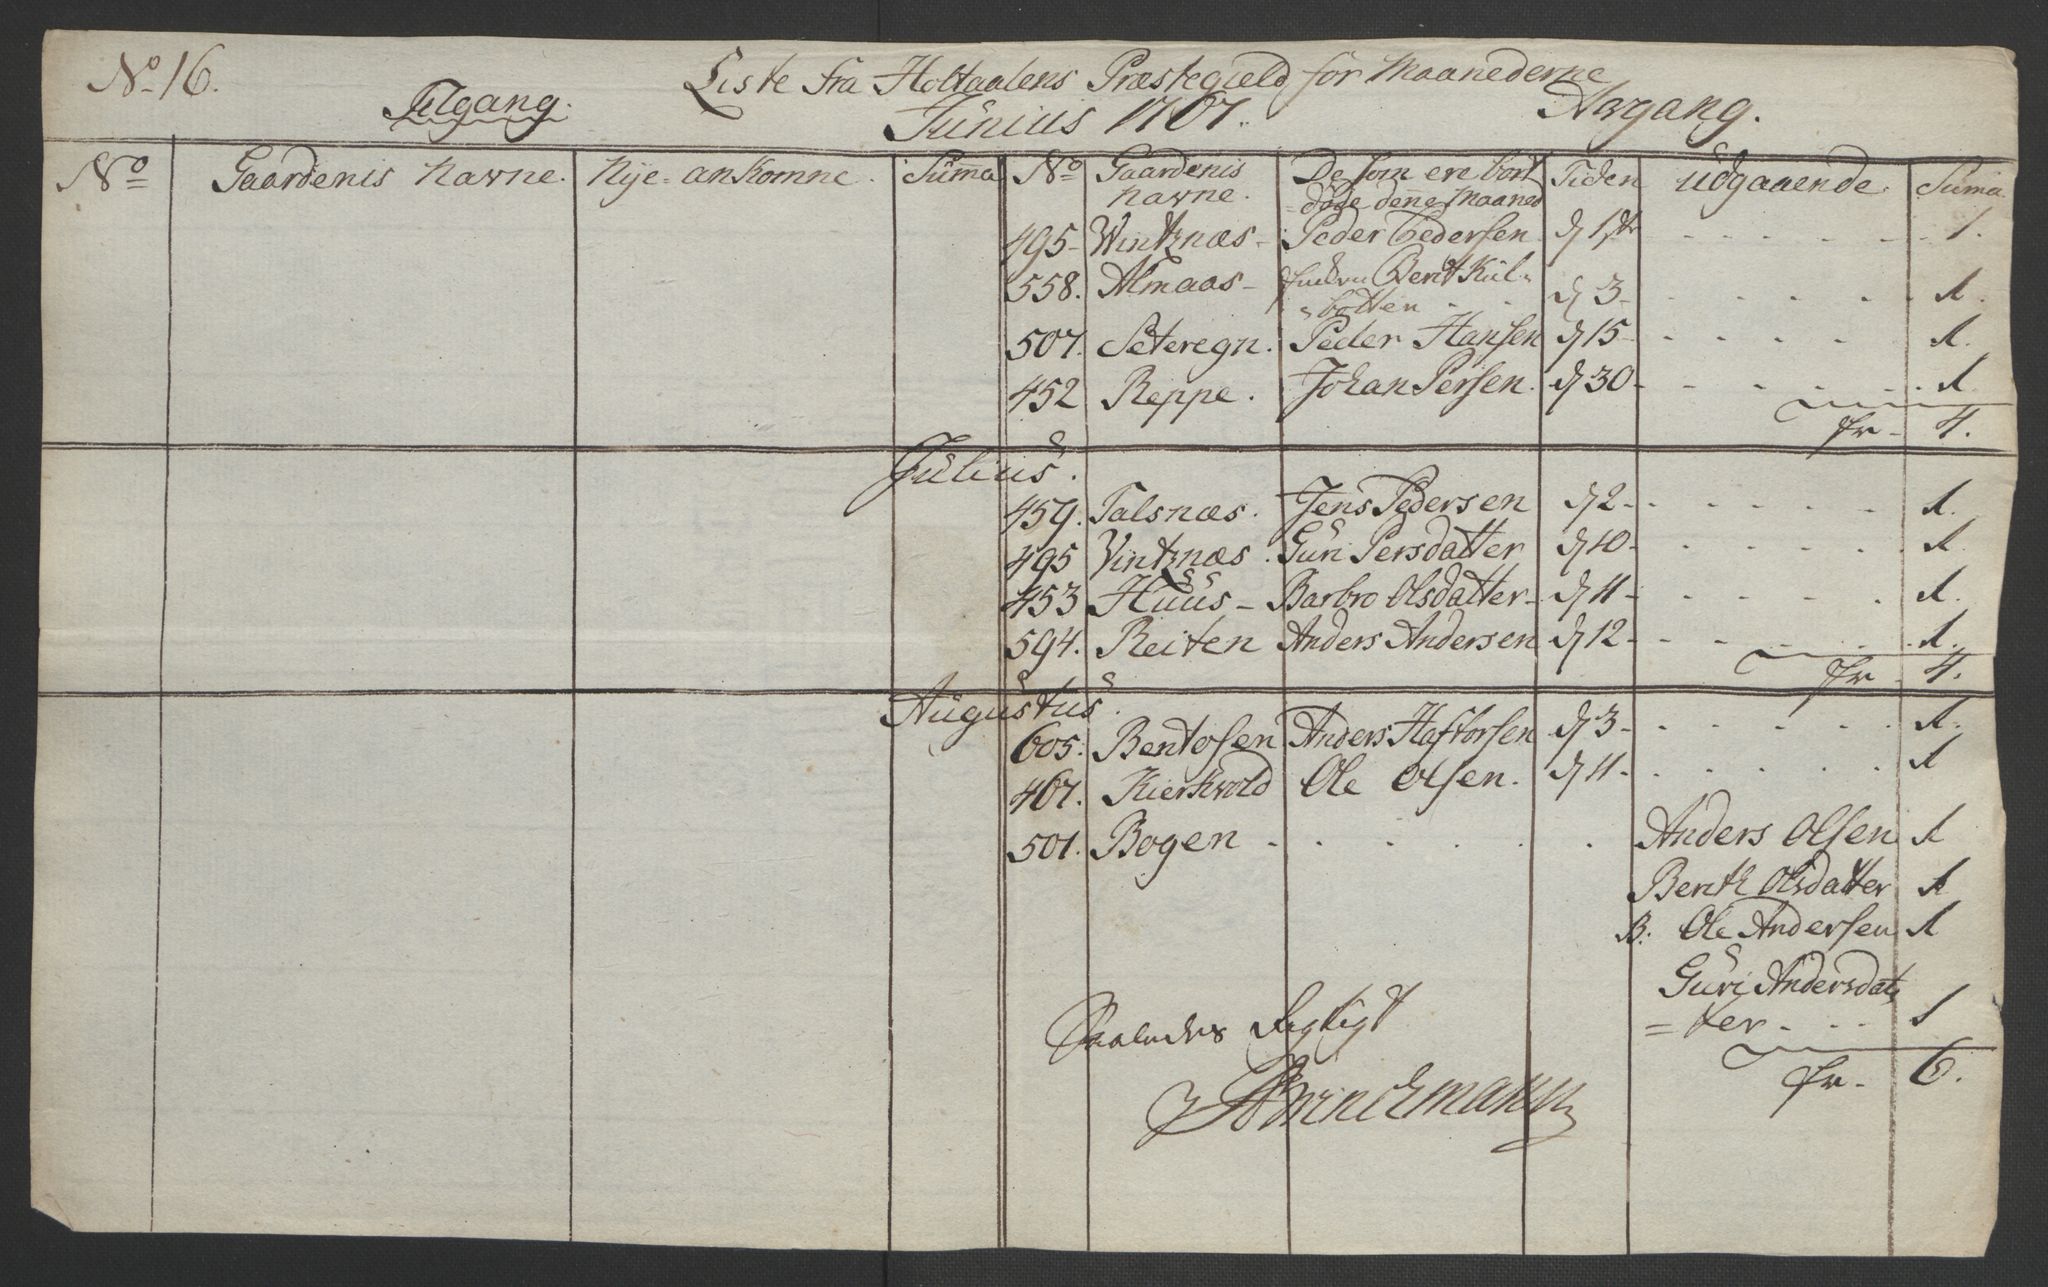 No 16.
Liste fra Holtaalens Præstegield for Maanederne
Tilgang.
Junius 1767.
Afgang.
No
Gaardenis Navne.
Nye-ankomne.
Summa
No
Gaardenis Navne.
De som ere bort døde denne Maaned
Tiden
Udgaaende.
Suma
495- Vintznæs- Peder Pedersen d 1st - - - - - 1.
558. Almaas- Bent Kul=
=botten - - d 3- - - - - 1.
507. Seteregn. Peder Hansen d 15- - - - - 1.
452 Reppe. Johan Persen. d 30- - - - - 1
4.
Julius.
459. Talsnæs. Jens Pedersen d 2- - - - - 1.
495 Vintznæs. Guri Persdatter d 10- - - - - 1
453 Huus- Barbro Olsdatter- d 11- - - - - 1.
594. Reiten Anders Andersen d 12- - - - - 1.
4.
Augustus.
605. Bentosen Anders Haftorsen d 3- - - - - 1.
467. Kierkvold Ole Olsen. d 11- . . . . . 1
501. Bogen . . . . . . Anders Olsen 1
Berith Olsdatter 1
B: Ole Andersen 1
Guri Andersdat=
=ter - - - 1
6.
Saaledes Rigtigt
Brinchmann